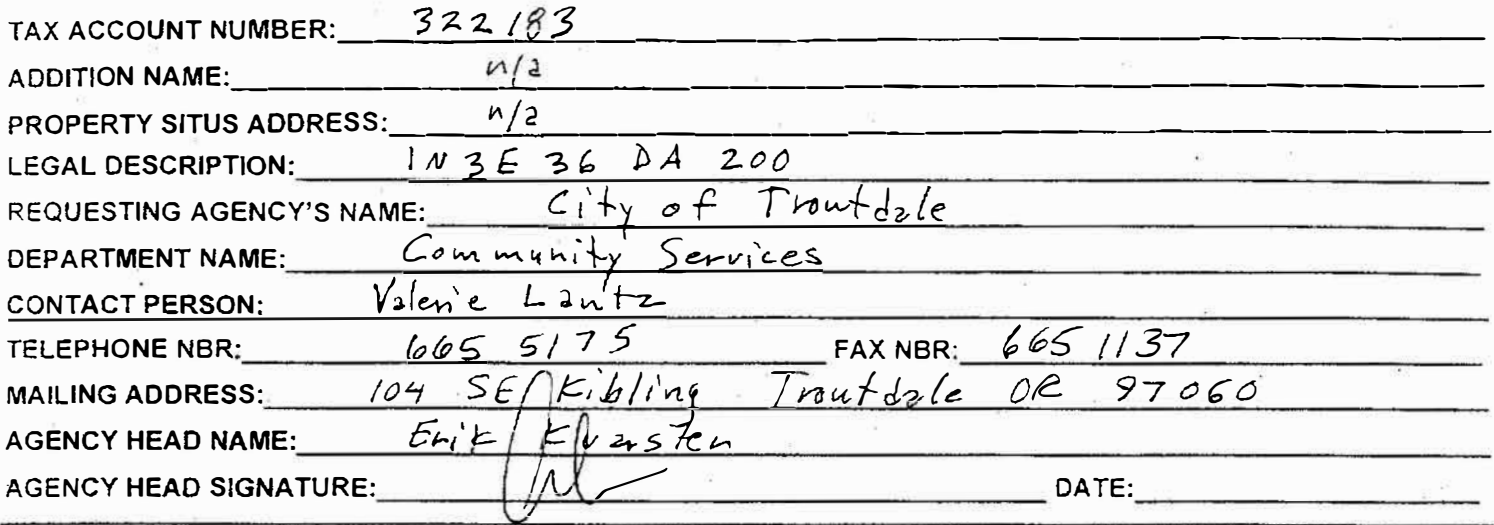 TAX ACCOUNT NUMBER: 322183
ADDITION NAME: n/a
PROPERTY SITUS ADDRESS: n/a
LEGAL DESCRIPTION: 1N 3E 36 DA 200
REQUESTING AGENCY'S NAME: City of Troutdale
DEPARTMENT NAME: Community Services
CONTACT PERSON: Valerie Lantz
TELEPHONE NBR: 665 5175 FAX NBR: 665 1137
MAILING ADDRESS: 104 SE Kibling Troutdale OR 97060
AGENCY HEAD NAME: Erik Kvarsten
AGENCY HEAD SIGNATURE: DATE: